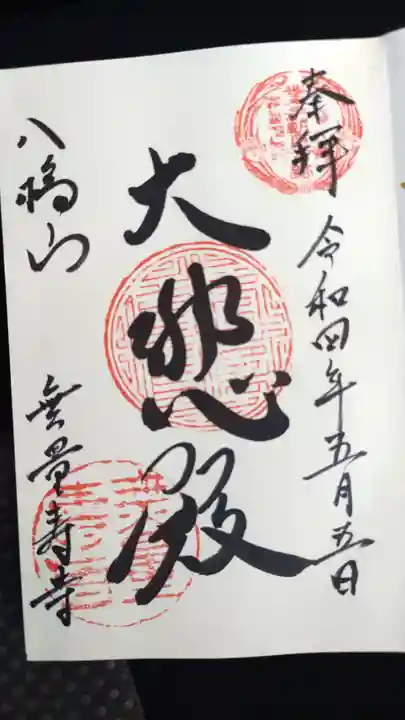 奉拝
令和四年五月五日
大悲殿
八橋山
無量寿寺